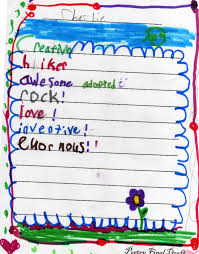 Charlie
Creative
hiker
awesome adopted
rock!
love!
inventive!
enormous!!
Poetry Final Draft